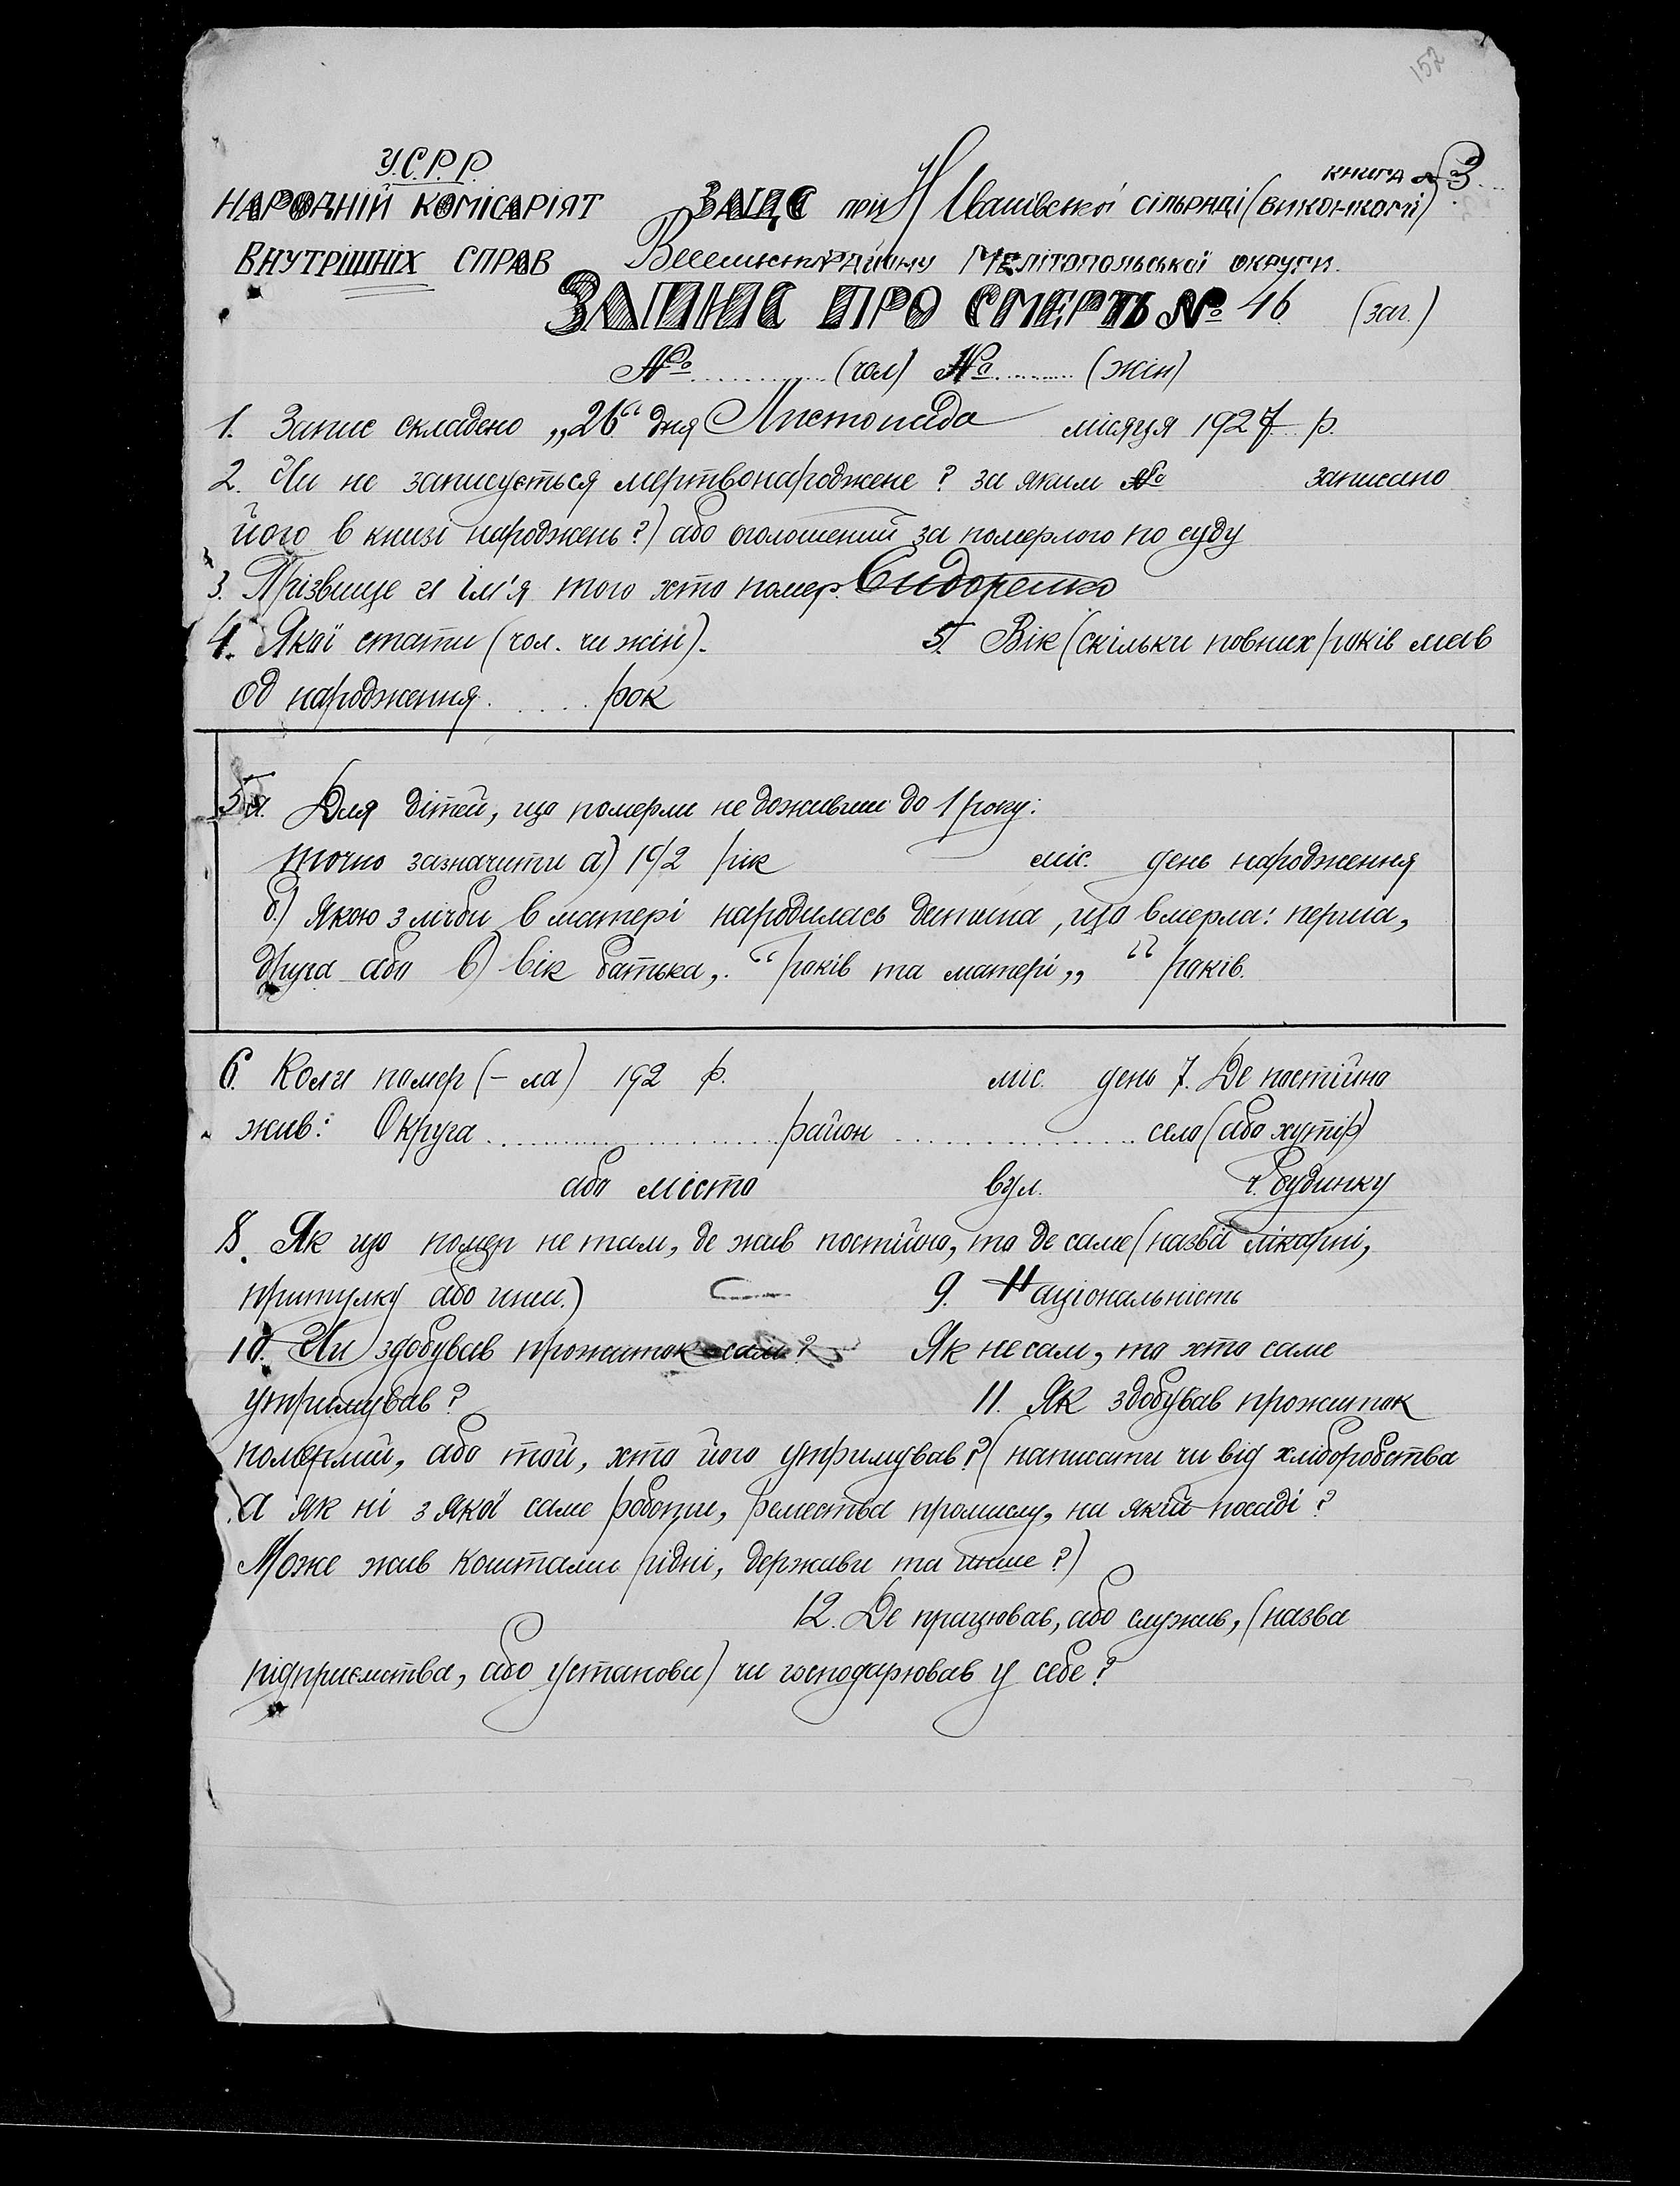 152
У.С.Р.Р.
книга № 3
НАРОДНІЙ КОМІСАРІЯТ ЗАГС при Н Іванівської сільраді (виконкомі)
ВНУТРІШНІХ СПРАВ району Мелітопольської округи.
ЗАПИС ПРО СМЕРТЬ № 46 (заг.)
№ ............ (чол) № .......... (жін)
1. Запис складено „26“ дня Листопада місяця 1927 р.
2. Чи не записується мертвонароджене? за яким № записано
його в книзі народжень?) або оголошений за померлого по суду
3. Прізвище й ім'я того хто помер. Сидоренко
4. Якої стати (чол. чи жін). 5. Вік (скільки повних років мав
од народження ..... рок
5а. Для дітей, що померли не доживши до 1 року:
точно зазначити а) 192 рік міс. день народження
б) Якою з лічби в матері народилась дитина, що вмерла: перша,
друга або в) вік батька „ “ років та матері „ “ років.
6. Коли помер (-ла) 192 р. міс. день 7. Де постійно
жив: Округа .................... район ................ село (або хутір)
або місто вул. ч. будинку
8. Як що помер не там, де жив постійно, то де саме (назва лікарні,
притулку або инш.) 9. Національність
10. Чи здобував прожиток сам? Як не сам, то хто саме
утримував? 11. Як здобував прожиток
померлий, або той, хто його утримував? (написати чи від хліборобства
а як ні з якої саме роботи, ремества промислу, на якій посаді?
Може жив коштами рідні, держави та инше?)
12. Де працював, або служив, (назва
підприємства, або установи) чи господарював у себе?